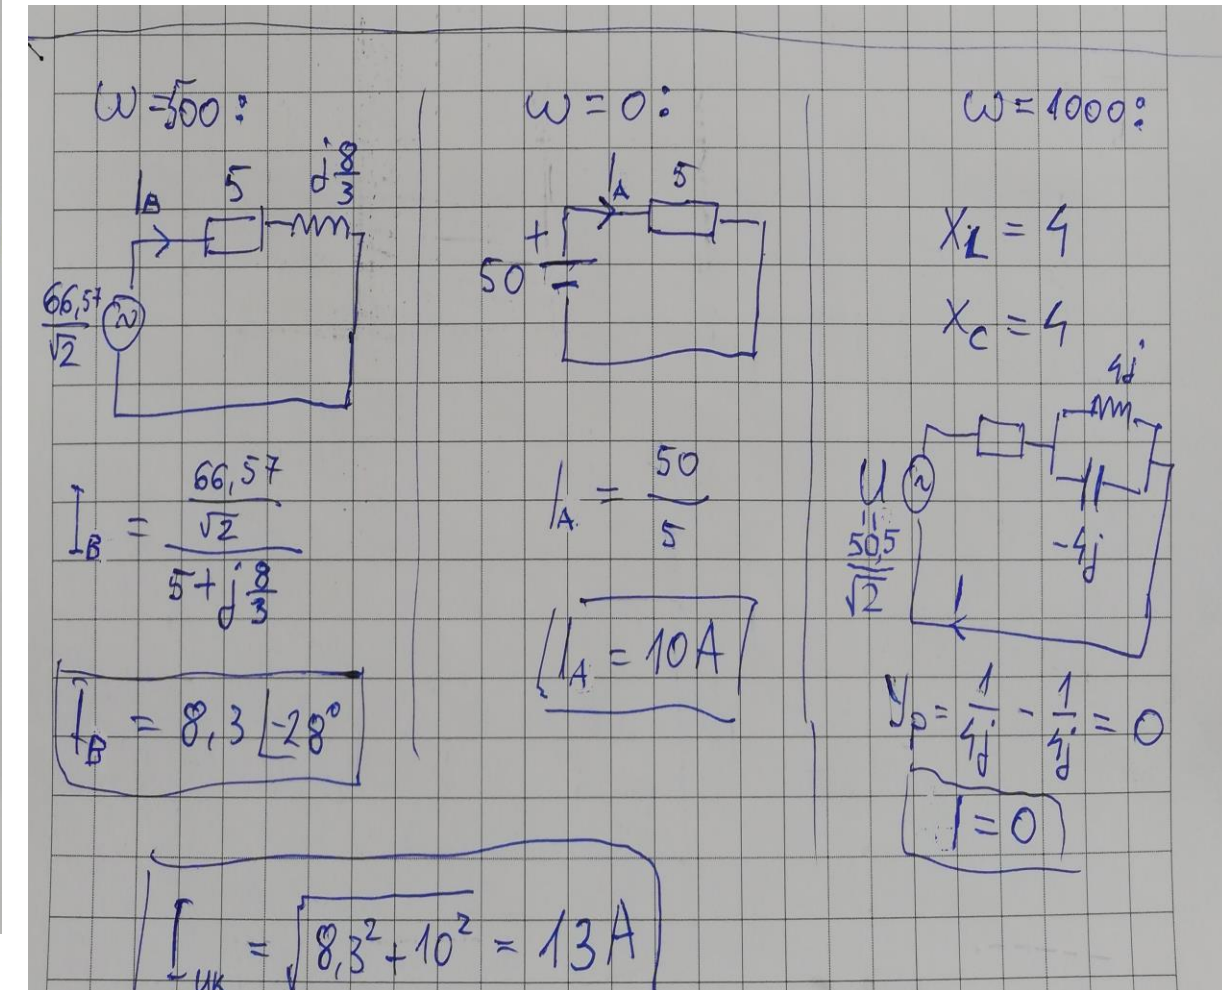 ω=500:
I_B
5
j 8/3
66,57/√2
I_B = (66,57/√2)/(5+j 8/3)
I_B = 8,3 ∠-28°
ω=0:
I_A
5
+
50
I_A = 50/5
I_A = 10A
ω=1000:
X_L = 4
X_C = 4
4j
U
=
50,5/√2
-4j
I
Y_p = 1/4j - 1/4j = 0
I = 0
I_uk = √(8,3²+10²) = 13A